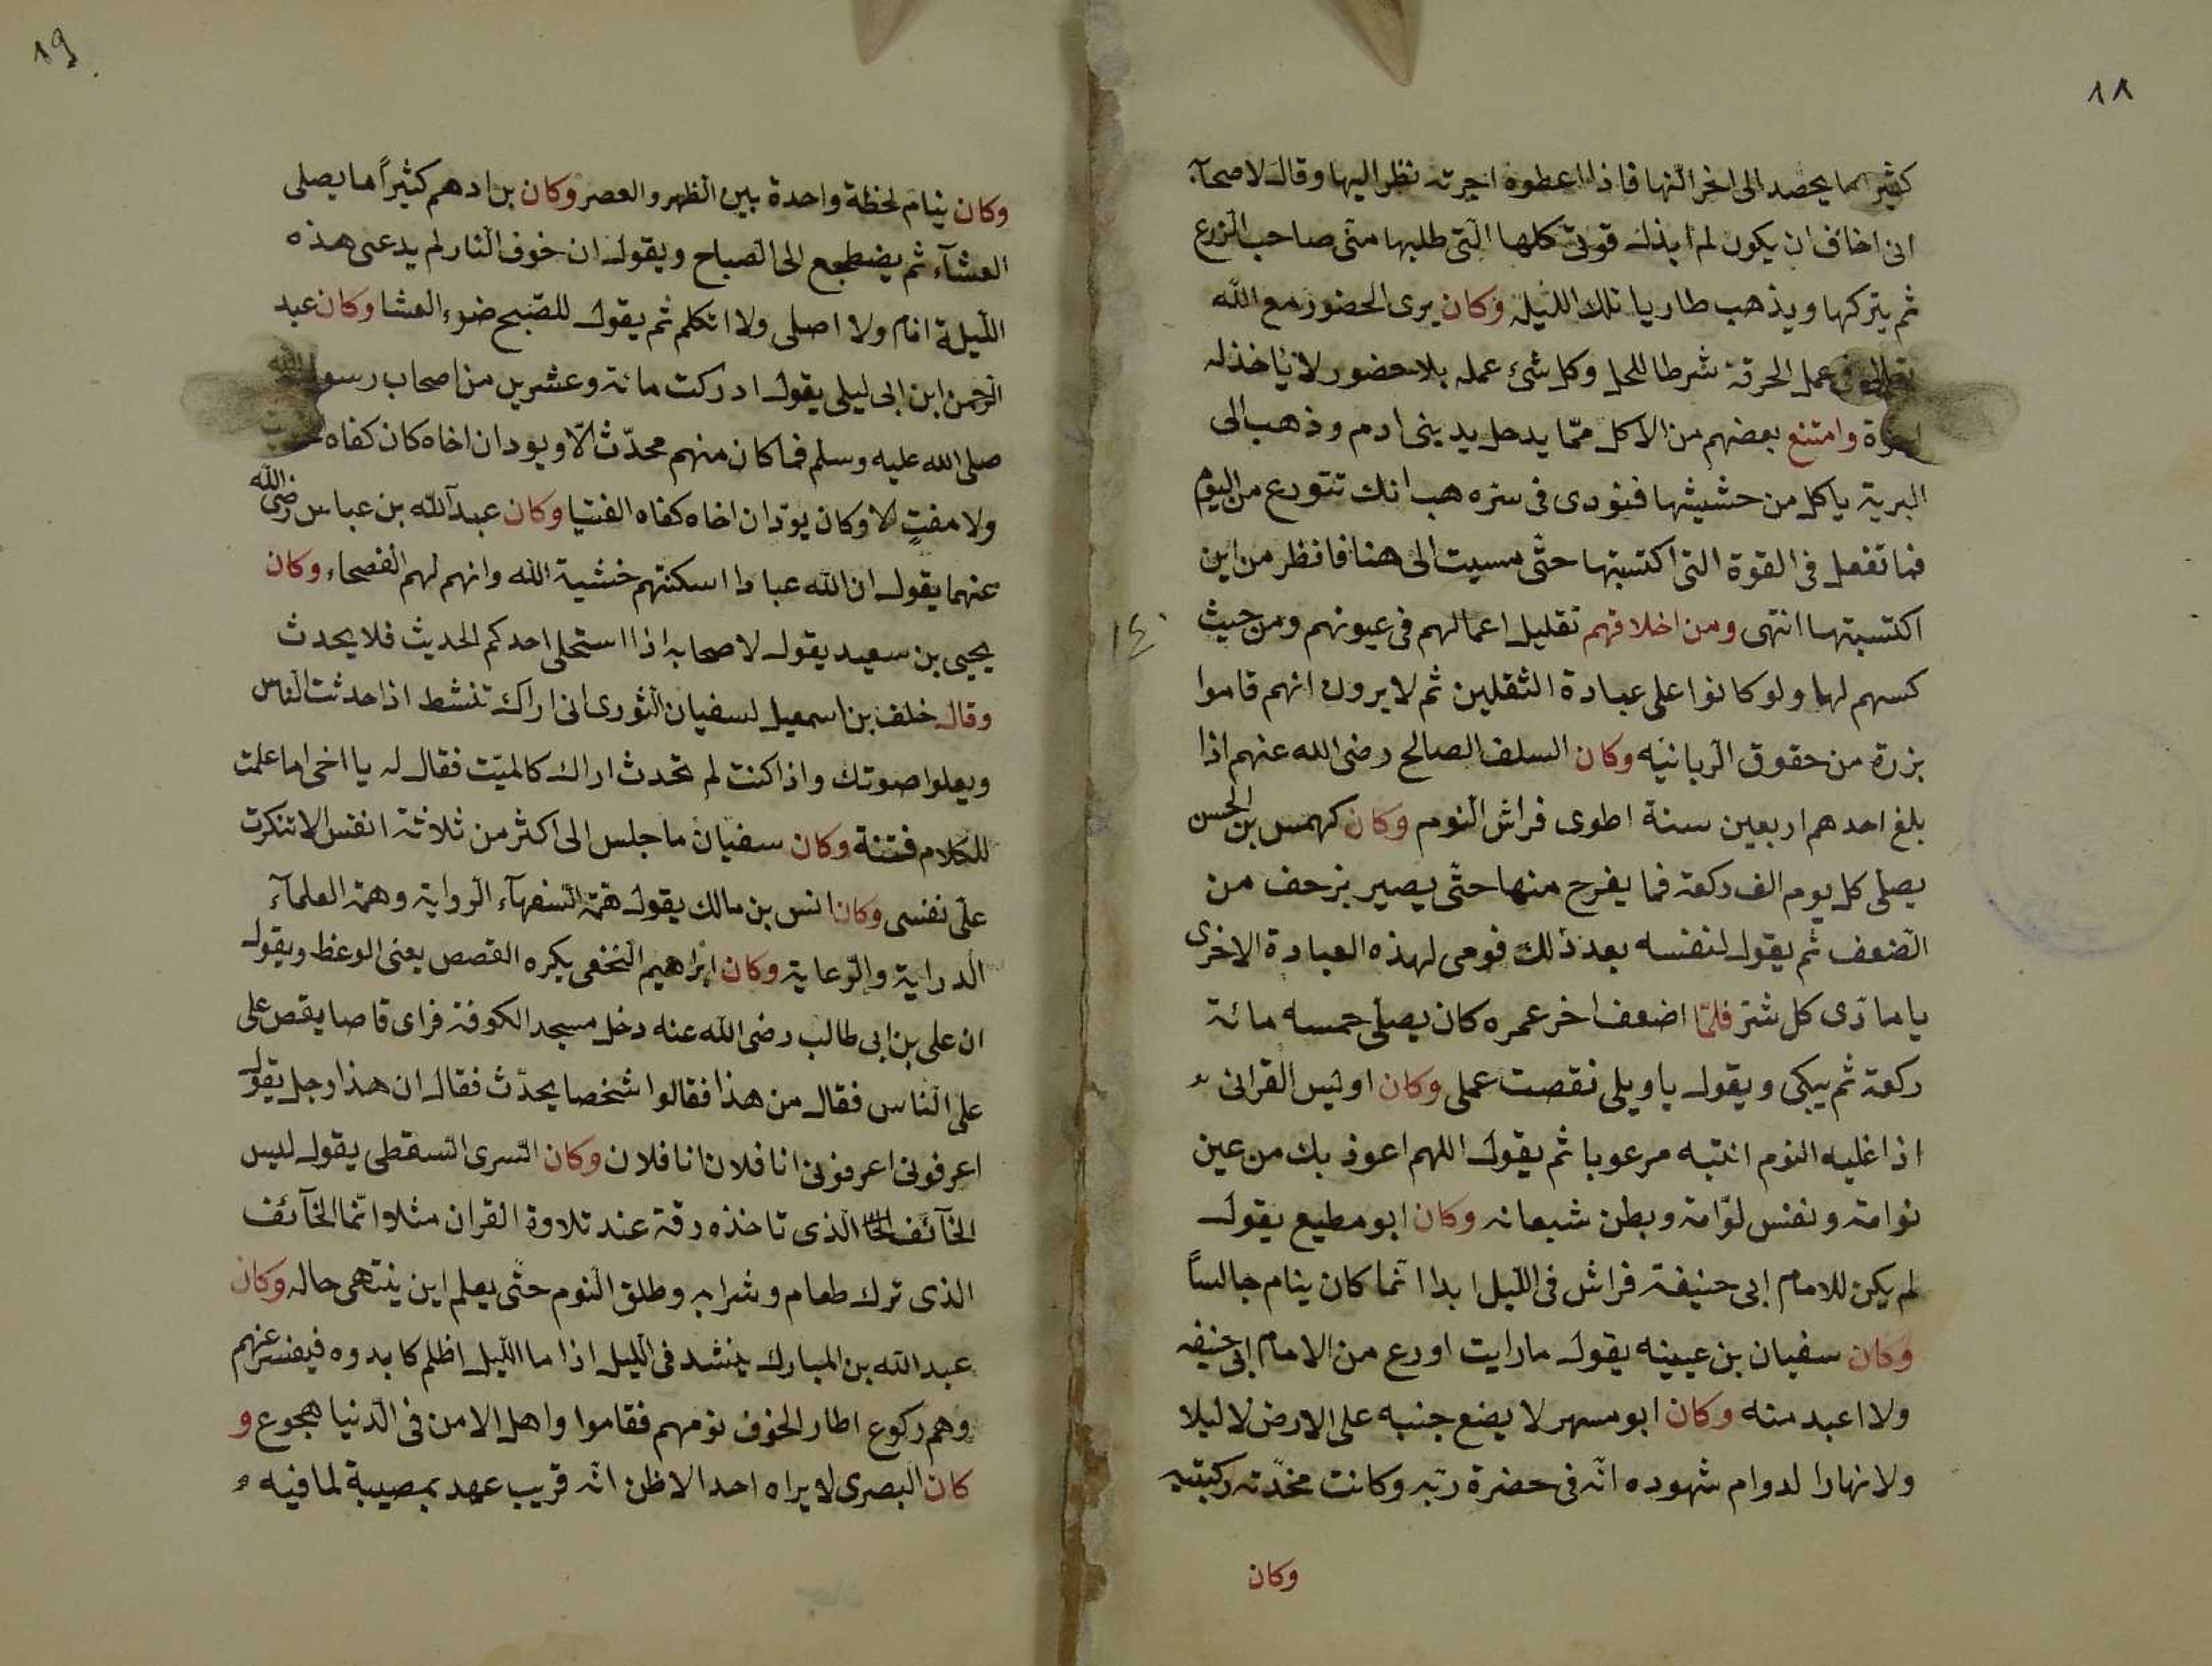 ١٨
كثيرا ما يحصد الى اخر النهار فاذا اعطوه اجرته نظر اليها وقال لاصحابه
انى اخاف ان يكون لم ابذل قوتى كلها التى طلبها منى صاحب الزرع
ثم يتركها ويذهب طاويا تلك الليلة وكان يرى الحضور مع الله
فى عمل الحرفة شرطا للحل وكل شئ عمله بلا حضور لا ياخذ له
اجرة وامتنع بعضهم من الاكل مما يدخل يد بنى ادم وذهب الى
البرية ياكل من حشيشها فنودى فى سره هب انك تتورع من اليوم
فما تفعل فى القوة التى اكتسبتها حتى مسيت الى هنا فانظر من اين
اكتسبتها انتهى ومن اخلاقهم تقليل اعمالهم فى عيونهم ومن حيث
كسبهم لها ولو كانوا على عبادة الثقلين ثم لا يرون انهم قاموا
بزرة من حقوق الربانيه وكان السلف الصالح رضى الله عنهم اذا
بلغ احدهم اربعين سنة اطوى فراش النوم وكان كهمس بن الحسن
يصلى كل يوم الف ركعة فما يفرج منها حتى يصير يزحف من
الضعف ثم يقول لنفسه بعد ذلك قومى لهذه العبادة الاخرى
يا ماوى كل شر فلما اضعف اخر عمره كان يصلى خمسه مائة
ركعة ثم يبكى ويقول يا ويلى نقصت عملى وكان اويس القرانى
اذا غلبه النوم انتبه مرعوبا ثم يقول اللهم اعوذ بك من عين
نوامة ونفس لوامة وبطن شبعانه وكان ابو مطيع يقول
لم يكن للامام ابى حنيفة فراش فى الليل ابدا انما كان ينام جالسا
وكان سفيان بن عيينه يقول ما رايت اورع من الامام ابى حنيفه
ولا اعبد منه وكان ابو مسهر لا يضع جنبه على الارض لا ليلا
ولا نهارا لدوام شهوده انه فى حضرة ربه وكانت مخدته ركبتيه
وكان
١٩
وكان ينام لحظة واحدة بين الظهر والعصر وكان بن ادهم كثيرا ما يصلى
العشآء ثم يضطجع الى الصباح ويقول ان خوف النار لم يدعنى هذه
الليلة انام ولا اصلى ولا اتكلم ثم يقول للصبح ضوء العشا وكان عبد
الرحمن ابن ابى ليلى يقول ادركت مائة وعشرين من اصحاب رسول الله
صلى الله عليه وسلم فما كان منهم محدث الا ويود ان اخاه كان كفاه
ولا مفت الا وكان يود ان اخاه كفاه الفتيا وكان عبد الله بن عباس رضى الله
عنهما يقول ان لله عبادا اسكنتهم خشية الله وانهم لهم الفصحاء وكان
يحيى بن سعيد يقول لاصحابه اذا استحلى احدكم الحديث فلا يحدث
وقال خلف بن اسمعيل لسفيان الثورى انى اراك تنشط اذا حدثت الناس
ويعلوا صوتك واذا كنت لم تحدث اراك كالميت فقال له يا اخى اما علمت
للكلام فتنة وكان سفيان ما جلس الى اكثر من ثلاثة انفس الا تنكرت
على نفسى وكان انس بن مالك يقول همة السفهآء الرواية وهمة العلمآء
الدراية والرعاية وكان ابراهيم النخعى يكره القصص يعنى الوعظ ويقول
ان على بن ابى طالب رضى الله عنه دخل مسجد الكوفة فراى قاصا يقص على
على الناس فقال من هذا فقالوا شخصا يحدث فقال ان هذا رجل يقول
اعرفونى اعرفونى انا فلان انا فلان وكان السرى السقطى يقول ليس
الخآئف الذى تاخذه رقة عند تلاوة القران مثلا وانما الخآئف
الذى ترك طعام وشرابه وطلق النوم حتى يعلم اين ينتهى حاله وكان
عبد الله بن المبارك ينشد فى الليل اذا ما الليل اظلم كابدوه فيفسر عنهم
وهم ركوع اطار الخوف نومهم فقاموا واهل الامن فى الدنيا هجوع و
كان البصرى لا يراه احد الا ظن انه قريب عهد بمصيبة لما فيه